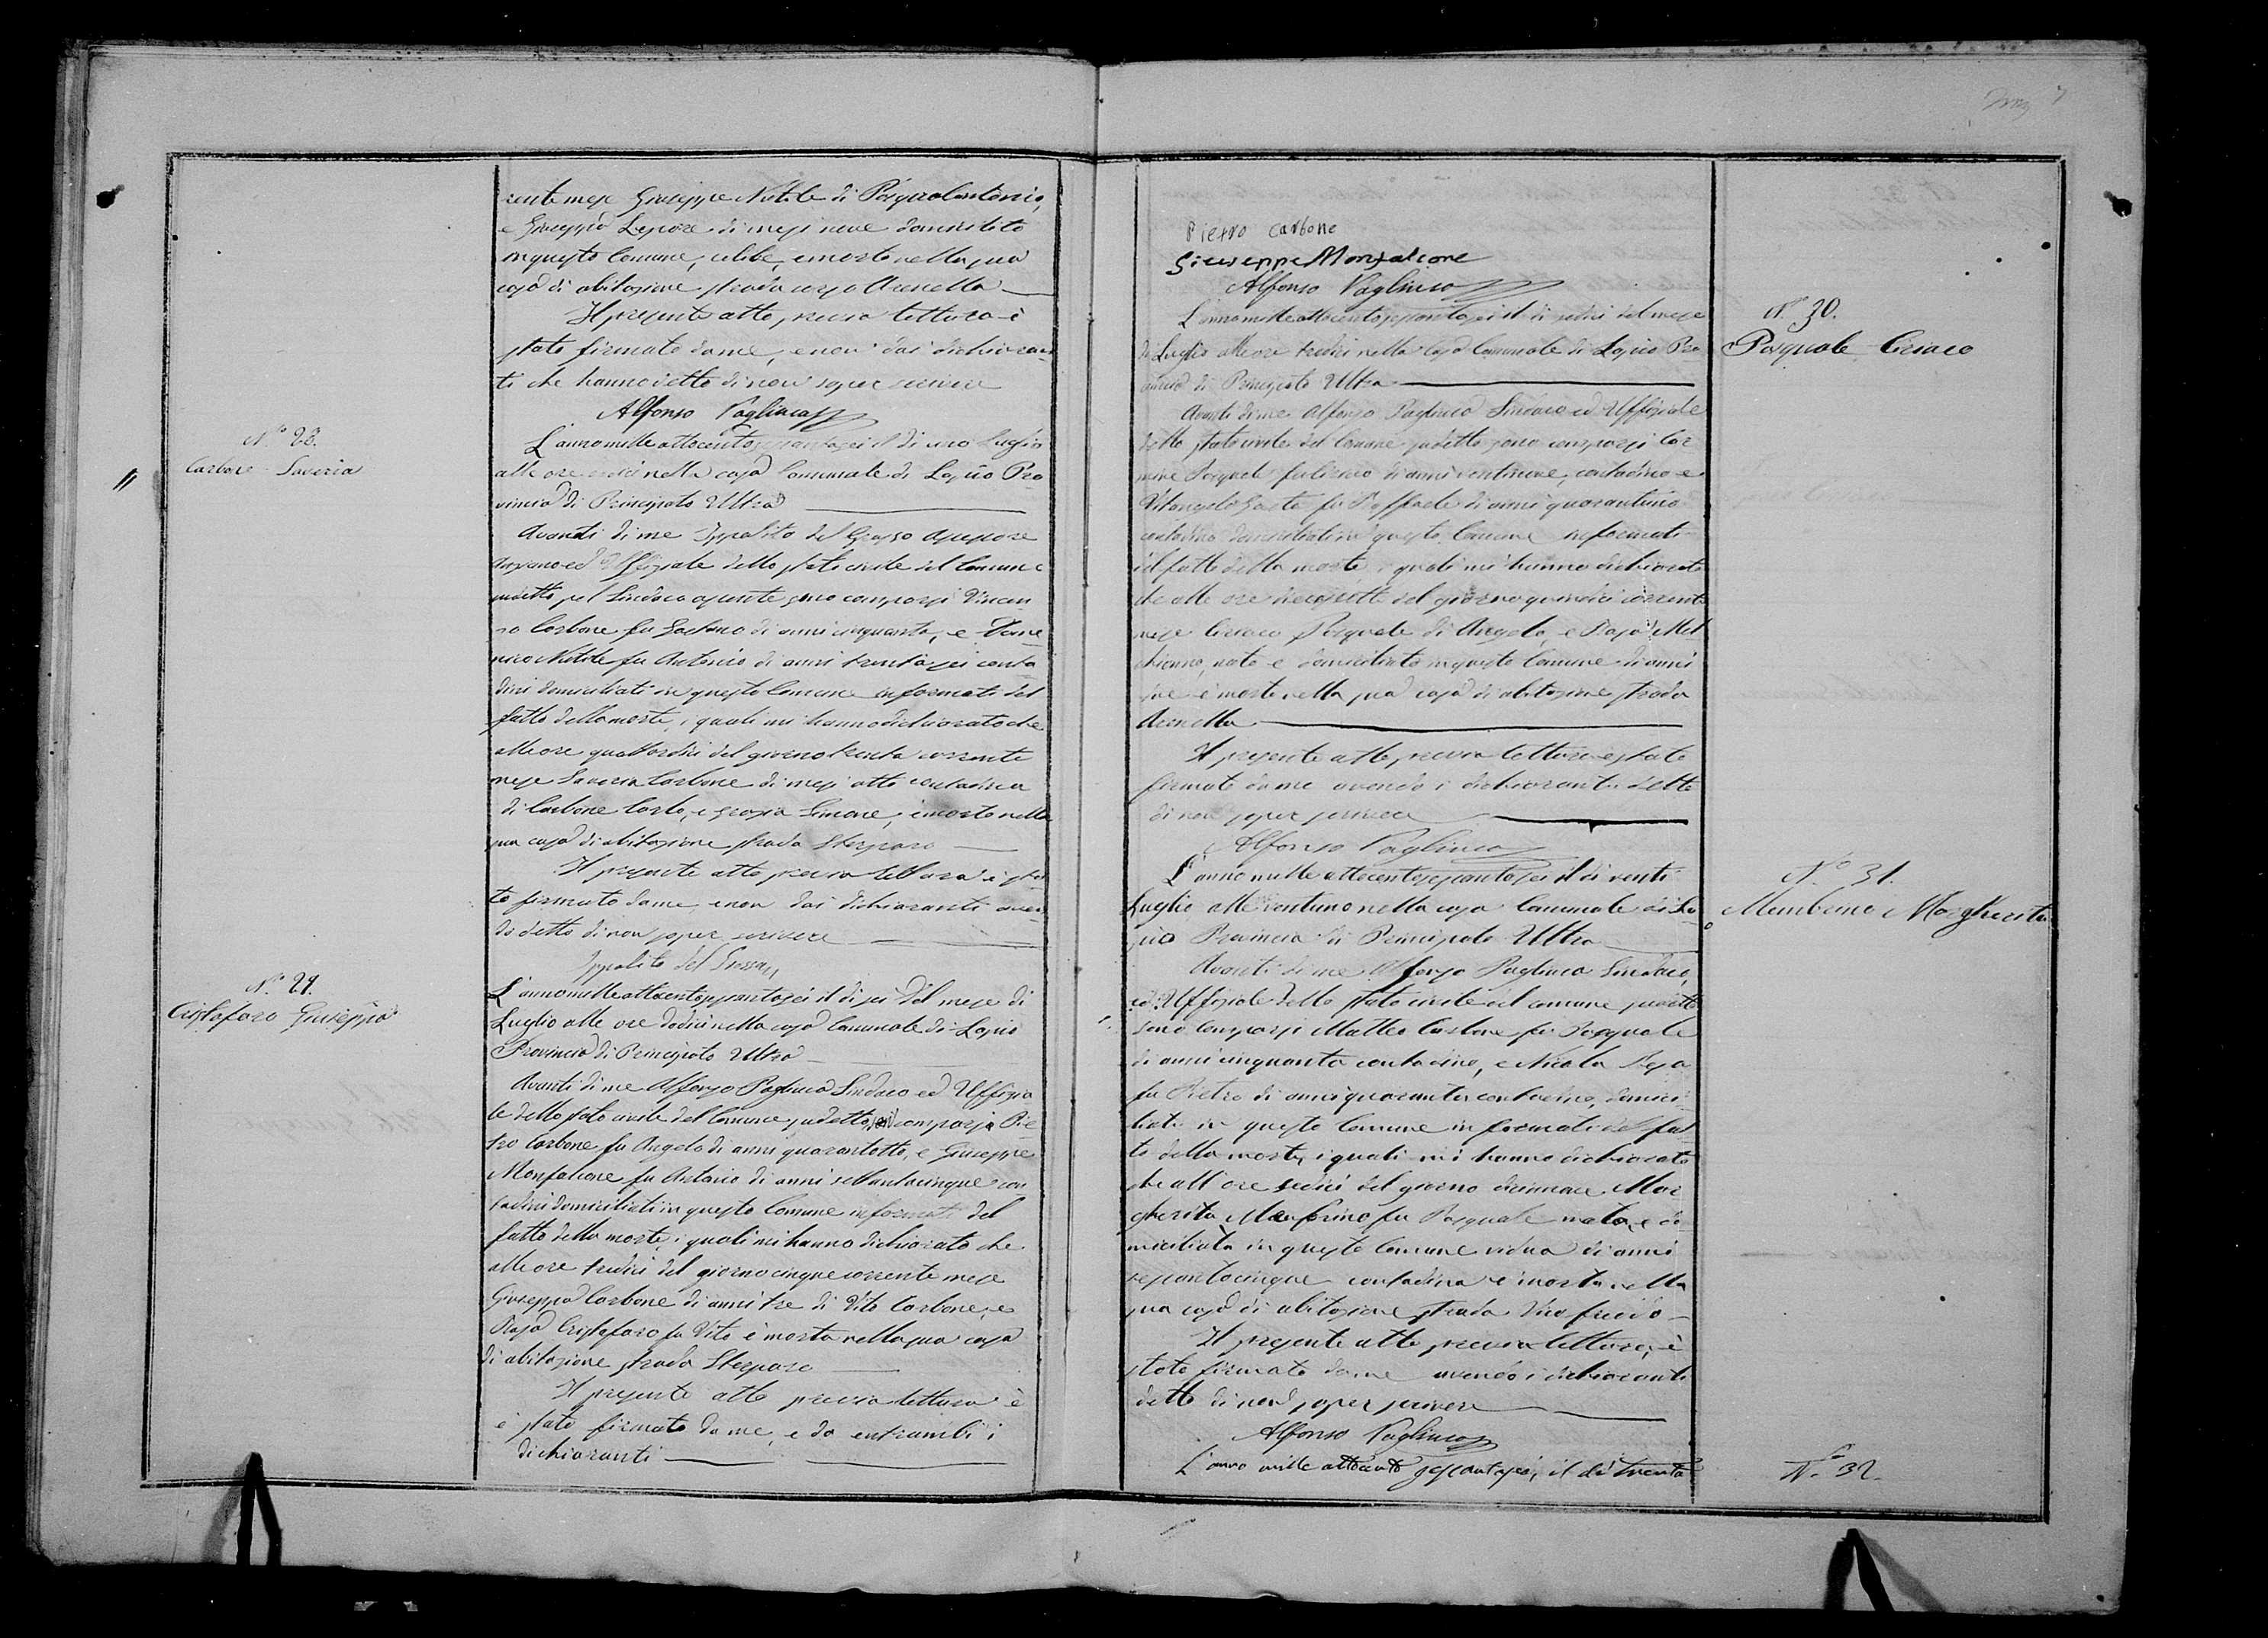 rente mese Giuseppe Nobile di Pasqualantonio,
e Giuseppa Lepore di mesi nove domiciliato
in questo Comune, celibe, è morto nella sua
casa di abitazione strada corso Arenella
Il presente atto, previa lettura è
stato firmato da me, e non dai dichiaran
ti che hanno detto di non saper scrivere
Alfonso Pagliuca
N.° 28.
Carbone Saveria
L'anno mille ottocento sessantasei il dì uno Luglio
alle ore nella casa Comunale di Lapio Pro
vincia di Principato Ultra
Avanti di me Ippolito del Grosso Assessore
Anziano ed Uffiziale dello stato civile del Comune
sudetto pel Sindaco assente sono comparsi Vincen
zo Carbone fu Gaetano di anni cinquanta, e Dome
nico Nobile fu Antonio di anni trentasei conta
dini domiciliati in questo Comune informati del
fatto della morte, i quali mi hanno dichiarato che
alle ore quattordici del giorno trenta corrente
mese Saveria Carbone di mesi otto contadina
di Carbone Carlo, e Grazia Simone, è morta nella
sua casa di abitazione strada Sterparo
Il presente atto previa lettura è sta
to firmato da me, e non dai dichiaranti aven
do detto di non saper scrivere
Ippolito del Grosso
N.° 29.
Cristofaro Giuseppa
L'anno mille ottocento sessantasei il dì sei del mese di
Luglio alle ore dodici nella casa Comunale di Lapio
Provincia di Principato Ultra
Avanti di me Alfonso Pagliuca Sindaco ed Uffizia
le dello stato civile del Comune sudetto, comparsi Pie
tro Carbone fu Angelo di anni quarantotto, e Giuseppe
Monfalcone fu Antonio di anni settantacinque con
tadini domiciliati in questo Comune informati del
fatto della morte, i quali mi hanno dichiarato che
alle ore tredici del giorno cinque corrente mese
Giuseppa Carbone di anni tre di Vito Carbone, e
Rosa Cristofaro fu Vito è morta nella sua casa
di abitazione strada Sterparo
Il presente atto previa lettura è
è stato firmato da me, e da entrambi i
dichiaranti
Pietro Carbone
Giuseppe Monfalcone
Alfonso Pagliuca
N.° 30.
Pasquale Ciriaco
L'anno mille ottocento sessantasei il dì sedici del mese
di Luglio alle ore tredici nella casa Comunale di Lapio Pro
vincia di Principato Ultra
Avanti di me Alfonso Pagliuca Sindaco ed Uffiziale
dello stato civile del Comune sudetto sono comparsi Car
mine Pasquale fu Ciriaco di anni ventinove, contadino e
Vitangelo Gaeta fu Raffaele di anni quarantuno
contadino domiciliati in questo Comune informati
del fatto della morte i quali mi hanno dichiarato
che alle ore diecisette del giorno quindici corrente
mese Ciriaco Pasquale di Angelo, e Rosa Mel
chionno, nato e domiciliato in questo Comune di anni
due è morto nella sua casa di abitazione strada
Arenella
Il presente atto previa lettura è stato
firmato da me avendo i dichiaranti detto
di non saper scrivere
Alfonso Pagliuca
N.° 31.
Margherita
L'anno mille ottocento sessantasei il dì venti
Luglio alle ventuno nella casa Comunale di La
pio Provincia di Principato Ultra
Avanti di me Alfonso Pagliuca Sindaco,
ed Uffiziale dello stato civile del comune sudetto
sono comparsi Matteo Carbone fu Pasquale
di anni cinquanta contadino, e Nicola
fu Pietro di anni quaranta contadino, domici
liati in questo Comune informati del fat
to della morte, i quali mi hanno dichiarato
che all'ore sedici del giorno diecinnove Mar
gherita fu Pasquale nata, e do
miciliata in questo Comune vedua di anni
sessantacinque contadina è morta nella
sua casa di abitazione strada Vico freddo
Il presente atto previa lettura, è
stato firmato da me avendo i dichiaranti
detto di non saper scrivere
Alfonso Pagliuca
N.° 32.
L'anno mille ottocento sessantasei, il dì trenta